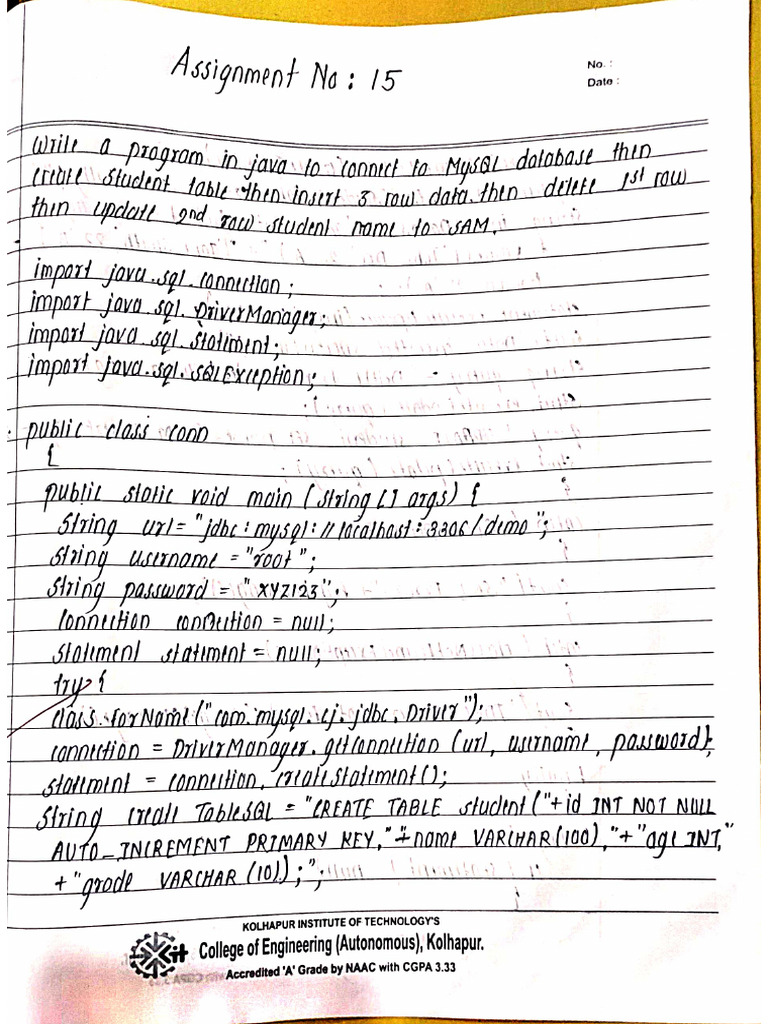 Assignment No : 15
No. :
Date :
Write a program in java to connect to MySQL database then
create student table then insert 3 row data. then delete 1st row
then update 2nd row student name to SAM.
import java.sql.connection;
import java.sql.DriverManager;
import java.sql.statement;
import java.sql.SQLException;
public class conn
{
public static void main (string [] args) {
String url = "jdbc:mysql://localhost:3306/demo";
String username = "root";
String password = "XYZ123";
Connection connection = null;
statement statement = null;
try {
class.forName("com.mysql.cj.jdbc.Driver");
connection = DriverManager.getConnection (url, username, password);
statement = connection.createStatement();
String create TableSQL = "CREATE TABLE student("+id INT NOT NULL
AUTO_INCREMENT PRIMARY KEY,"+name VARCHAR(100),"+"age INT,"
+"grade VARCHAR (10));";
KOLHAPUR INSTITUTE OF TECHNOLOGY'S
College of Engineering (Autonomous), Kolhapur.
Accredited 'A' Grade by NAAC with CGPA 3.33